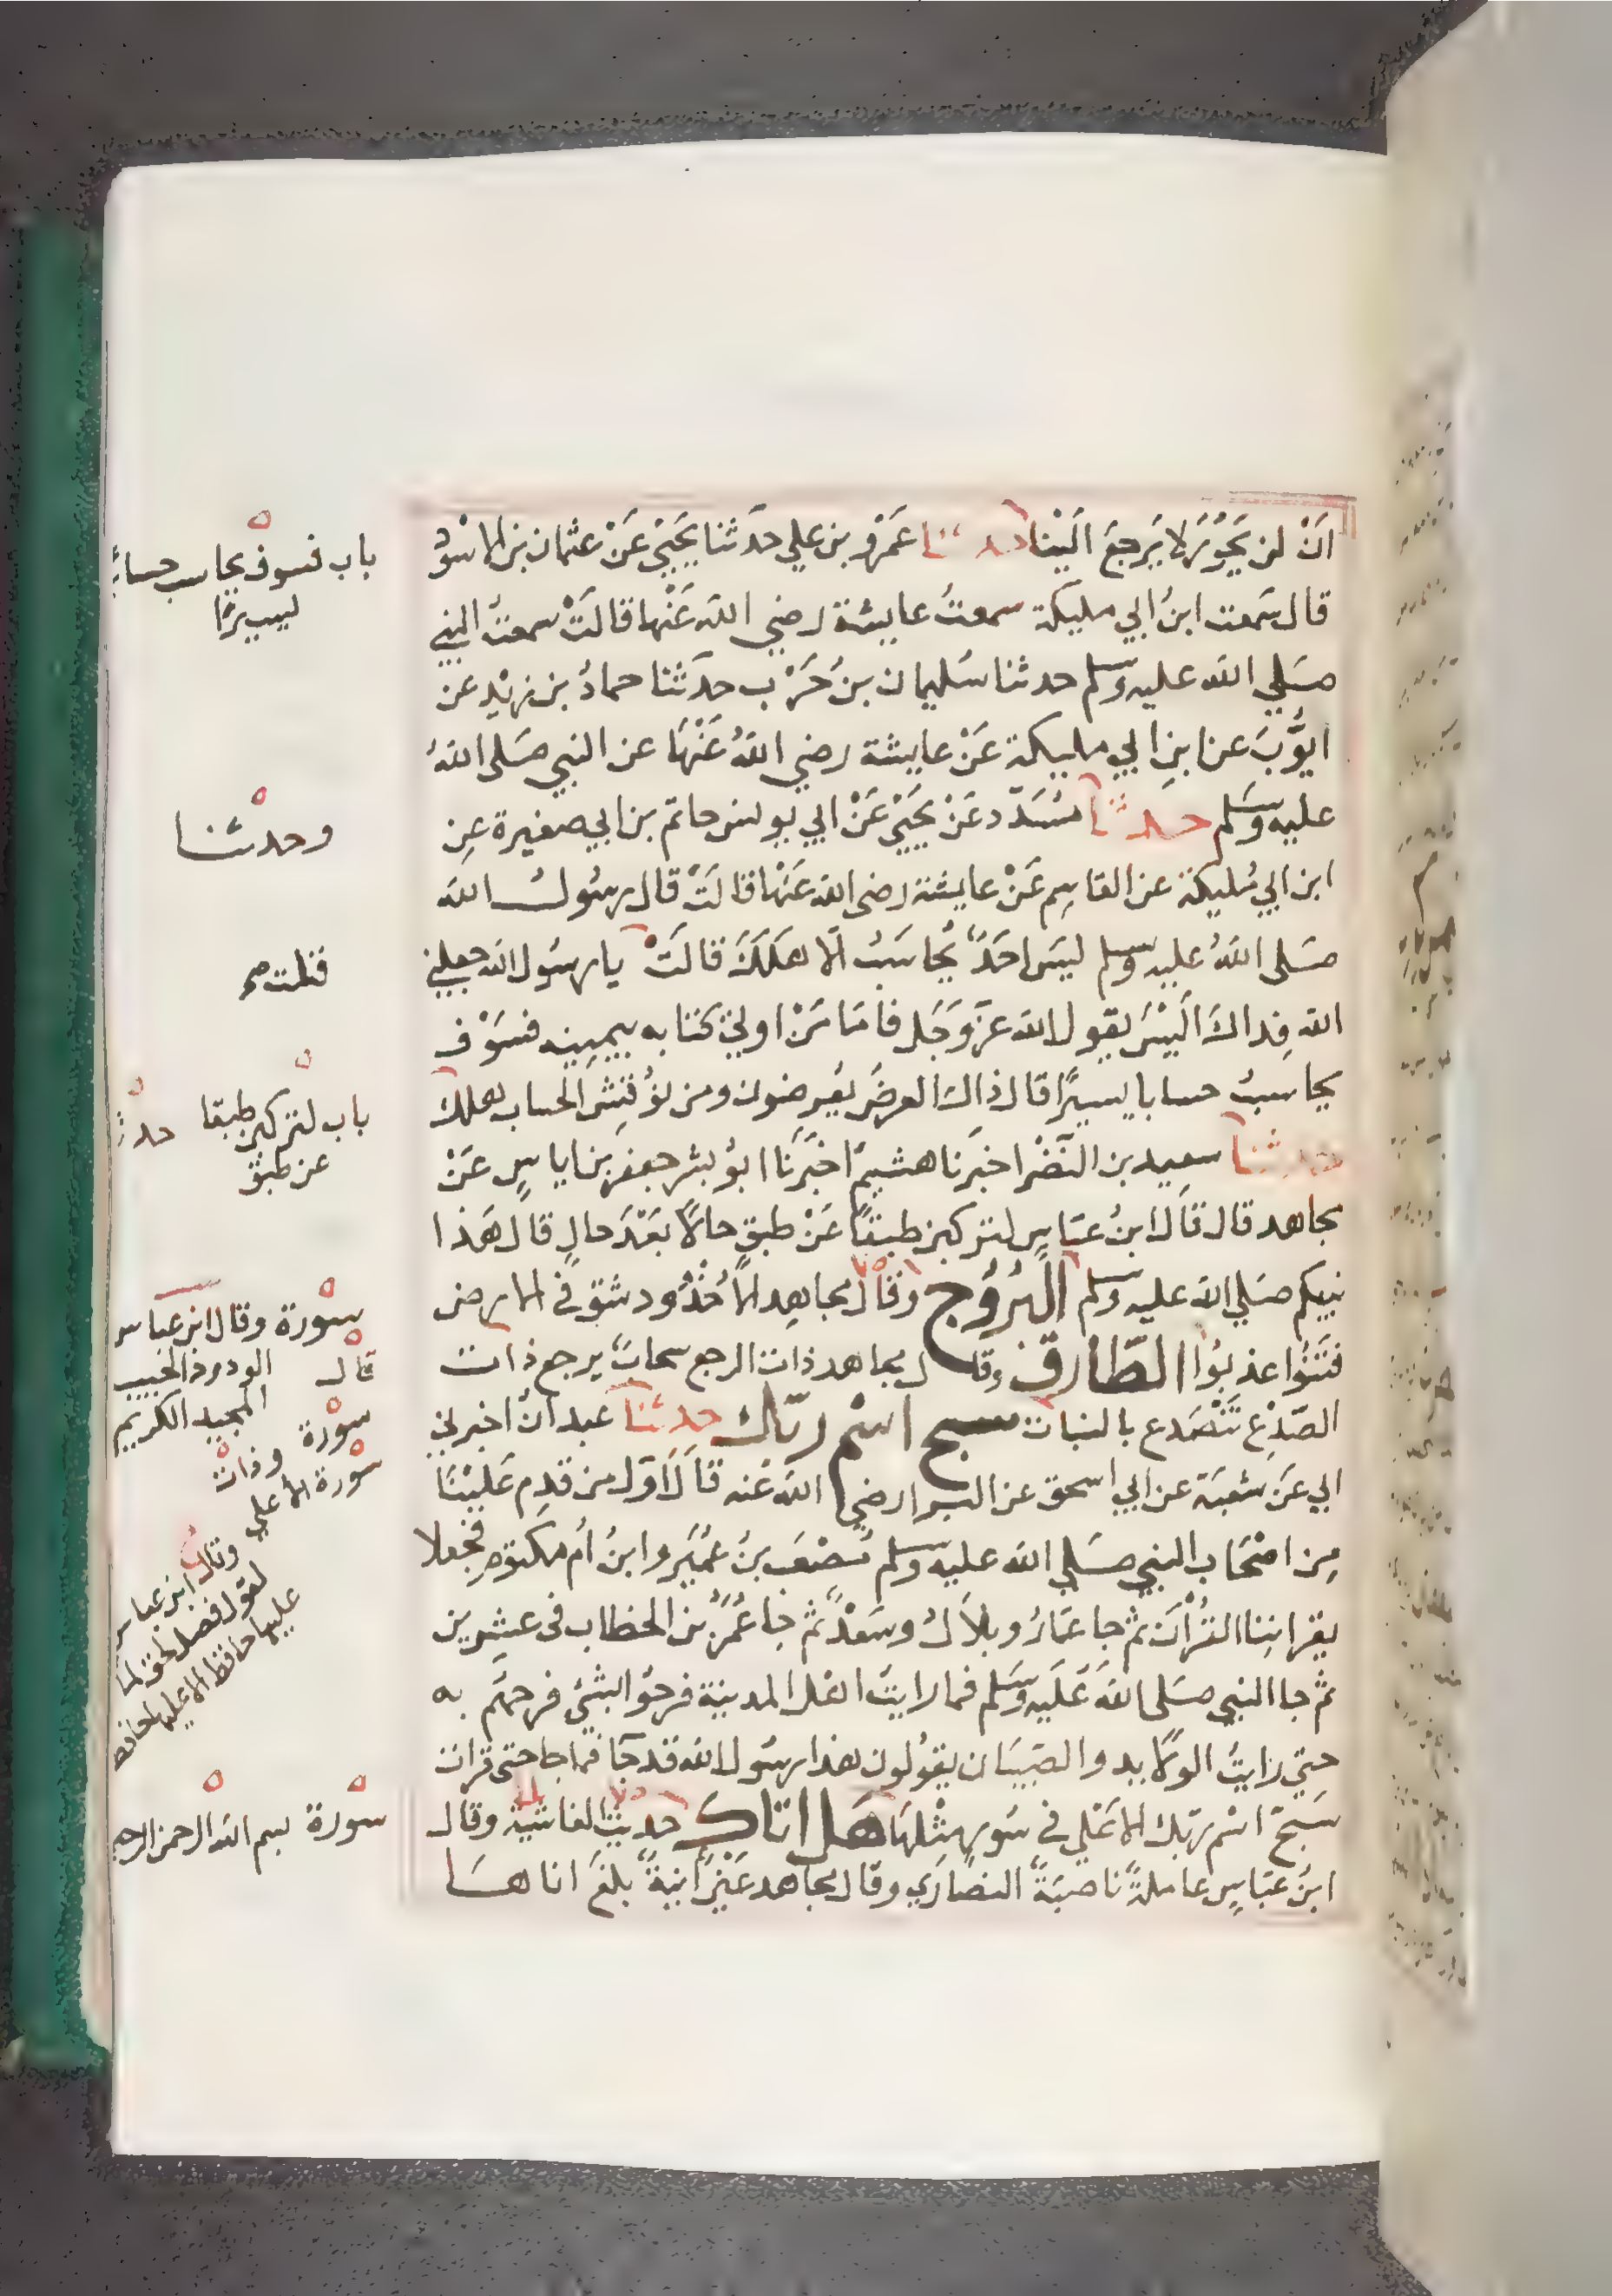 اَنْ لن يَحُوْرَ لا يَرجعَ اَلَيْنا حدثنا عَمْرُو بن علي حدَثنا يَحْيَى عَنْ عثمان بن الاسْوَد
قال سَمعت ابنُ ابي مليكة سمعتُ عايشة رضي الله عَنْها قالَتْ سمعتُ النبي
صَلي الله عليه وسَلم حدثنا سُليمان بن حَرْب حدَثنا حمادُ بن زيْدٍ عن
ايوُّبَ عن ابنِ ابي مليكة عَنْ عايشة رضي اللهُ عَنْهَا عن النبي صَلى اللهُ
عليه وسَلم حدثنا مُسَدّد عَنْ يَحْيَى عَنْ ابي يونس حاتم بن ابي صغيرة عِن
ابن ابي مُليكة عن القاسِم عَنْ عايشة رضي الله عَنْها قالَتْ قال رسُولُ الله
صَلى اللهُ عليه وسلم ليَس احَدٌ يُحاسَبُ اِلّا هَلَكَ قالَتْ يا رسُول الله جعلني
الله فِداكَ اَلَيْسَ يقول الله عزَّ وَجَل فامَا مَنْ اوتي كتابه بيمينه فسَوْف
يحاسَبُ حسابا يسيرًا قال ذاك العرضُ يُعرضون ومن نوُقِشَ الحساب هلك
حدثنا سعيد بن النَضْر اخبرنا هشيمٌ اخْبَرَنا ابوُ بشر جعفر بن اياسٍ عَنْ
مجاهد قال قال ابنُ عبَاسٍ لتركبن طبقًا عَنْ طبقٍ حالًا بَعْدَ حالٍ قال هَذا
نبيكم صَلي الله عليه وسَلم الْبُرُوْج وقالَ مجاهِد الاُخْدُوُد شق في الارض
فتَنُوا عذبوُا الطّارِق وقال مجاهد ذات الرجع سحابٌ يرجع ذات
الصّدْعِ تَتْصَدع بالنبات سبح اسْم ربّك حدثنا عبدانُ اخبرني
ابي عَن شعبَة عن ابي اسحق عن البرا رضي الله عَنه قال اَوّل من قدِم عَلَيْنَا
مِن اصْحَاب النبي صَلي الله عليه وسَلم مُصْعَب بنُ عُمَيْر وابنُ اُم مكتومٍ فجعلا
يقراننا القُرْأَنَ ثمَ جا عمَارُ وبلاَلُ وسَعْدٌ ثم جَا عُمَرُ بن الخطاب في عشرين
ثم جا النبي صَلى الله عَلَيه وسَلم فما رايتَ اهل المدينة فرحوُا بشئ فرحهُم به
حتى رايتُ الولايد والصّبيَان يقوُلون هذا رسُول الله قد جَا فما جا حتى قرات
سَبحَ اسْم ربّك الاعْلي في سُور مِثْلهَا هَل اتاك حديث الغاشية وقال
ابنُ عبّاسٍ عاملةً ناصبَةً النصَاري وقال مجاهد عَيْنٍ انيةً بلغَ اناهَا
باب فسوف يحاسب حسابا
يسيرا
وحدثنا
فقلت
باب لتركبن طبقا
عن طبق
سورة وقال ابن عباس
الودود الحبيب
المجيد الكريم
قال
سورة وذات
سورة الاعلي
وقال ابن عباس
لقول فصل لحق لما
عليها حافظ الا عليها حافظ
سورة بسم الله الرحمن الرحيم